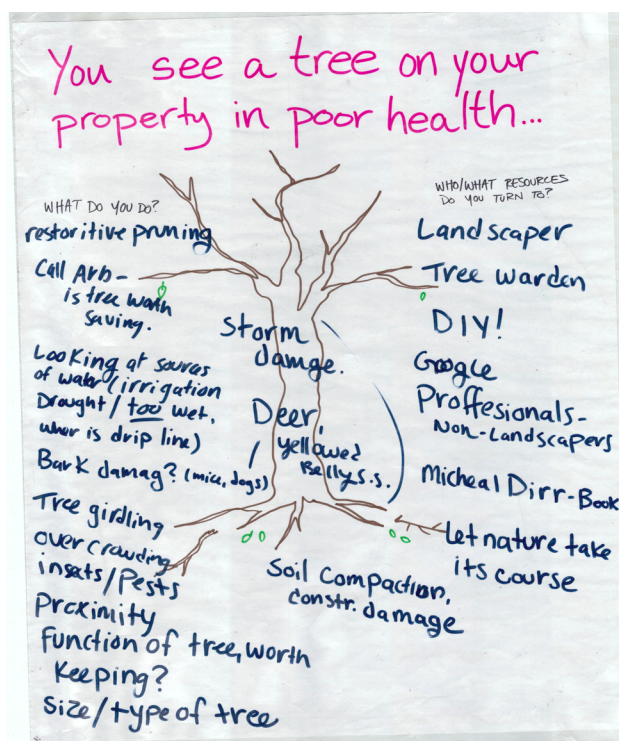 You see a tree on your
property in poor health...
WHAT DO YOU DO?
restoritive pruning
Call Arb-
is tree worth
saving.
Looking at sources
of water/irrigation
Drought/too wet,
wher is drip line)
Bark damag? (mice, dogs)
Tree girdling
over crowding
insects/Pests
Proximity
function of tree, worth
Keeping?
Size/type of tree
Storm
damge.
Deer,
yellowed
Belly S.S.
Soil Compaction,
constr. damage
WHO/WHAT RESOURCES
DO YOU TURN TO?
Landscaper
Tree warden
DIY!
Google
Proffesionals-
Non-Landscapers
Micheal Dirr-Book
Let nature take
its course